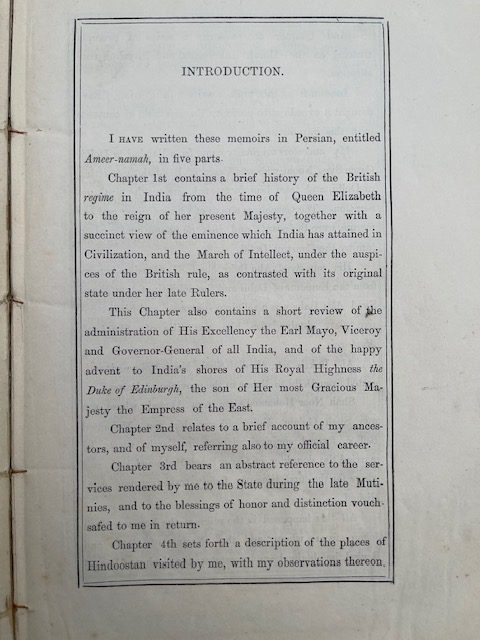 INTRODUCTION.
I HAVE written these memoirs in Persian, entitled
Ameer-namah, in five parts.
Chapter 1st contains a brief history of the British
regime in India from the time of Queen Elizabeth
to the reign of her present Majesty, together with a
succinct view of the eminence which India has attained in
Civilization, and the March of Intellect, under the auspi-
ces of the British rule, as contrasted with its original
state under her late Rulers.
This Chapter also contains a short review of the
administration of His Excellency the Earl Mayo, Viceroy
and Governor-General of all India, and of the happy
advent to India's shores of His Royal Highness the
Duke of Edinburgh, the son of Her most Gracious Ma-
jesty the Empress of the East.
Chapter 2nd relates to a brief account of my ances-
tors, and of myself, referring also to my official career.
Chapter 3rd bears an abstract reference to the ser-
vices rendered by me to the State during the late Muti-
nies, and to the blessings of honor and distinction vouch-
safed to me in return.
Chapter 4th sets forth a description of the places of
Hindoostan visited by me, with my observations thereon.